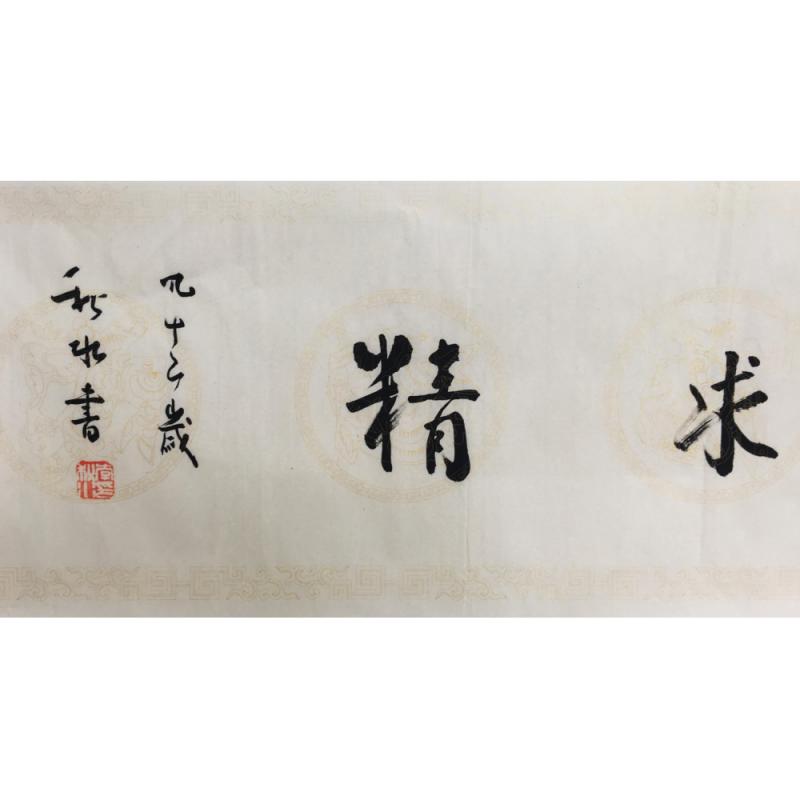 求精
九十三歲
秋水書